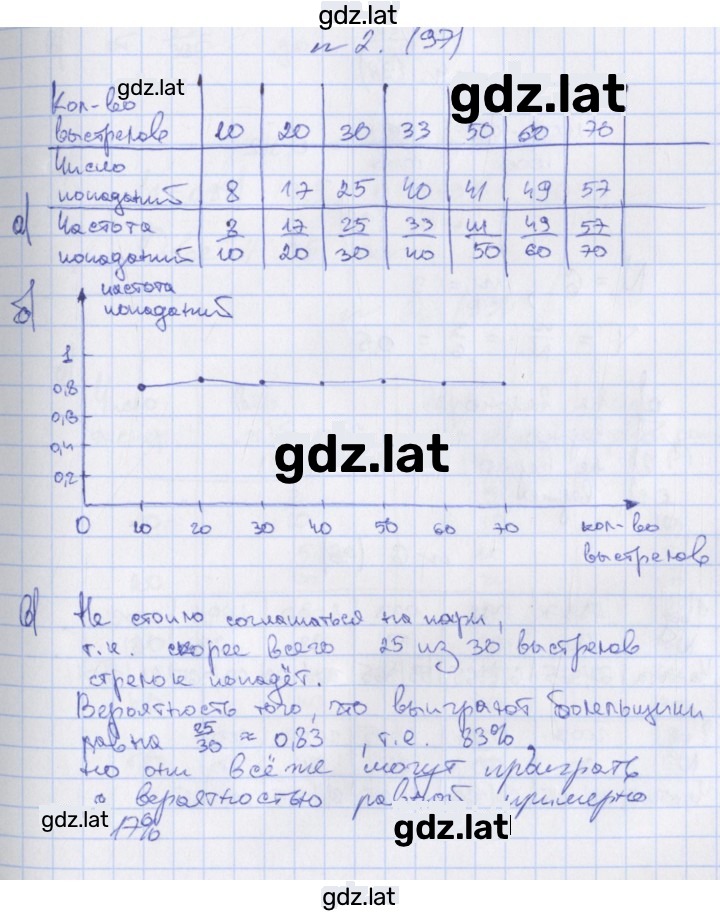 gdz.lat
№ 2. (97)
gdz.lat
gdz.lat
Кол-во
выстрелов 10 20 30 33 50 60 70
Число
попаданий 8 17 25 40 41 49 57
а) Частота 8 17 25 33 41 49 57
попаданий 10 20 30 40 50 60 70
б) частота
попаданий
1
0,8
0,6
0,4
0,2
gdz.lat
0 10 20 30 40 50 60 70 кол-во
выстрелов
в) Не стоило соглашаться на пари,
т.к. скорее всего 25 из 30 выстрелов
стрелок попадёт.
Вероятность того, что выиграют болельщики
равна 25/30 ≈ 0,83, т.е. 83%,
но они всё же могут проиграть
с вероятностью равной примерно
17%
gdz.lat
gdz.lat
gdz.lat